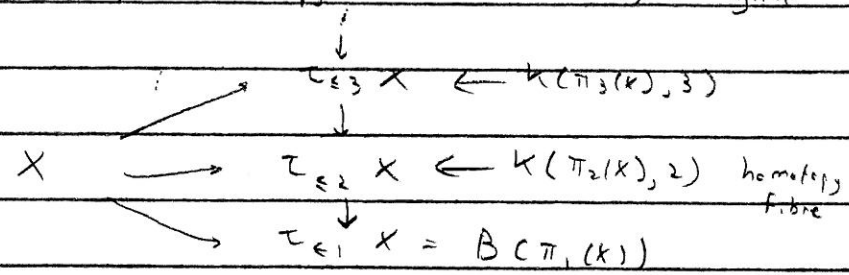 τ≤3 X ← K(π3(X), 3)
X → τ≤2 X ← K(π2(X), 2) homotopy fibre
τ≤1 X = B(π1(X))